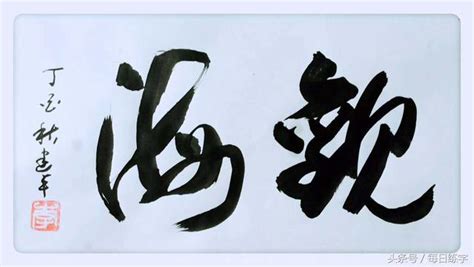 觀海
丁酉秋建军
头条号 / 每日练字